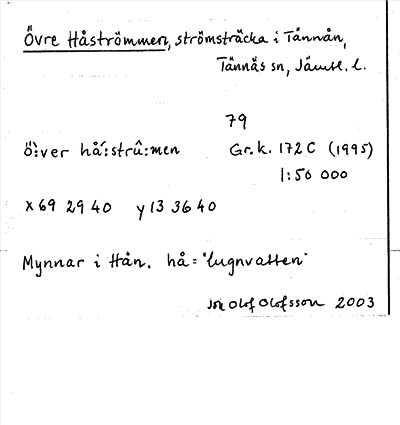 Övre Håströmmen, strömsträcka i Tännån,
Tännäs sn, Jämtl. l.
79
Ö`:ver hå´:strû:men Gr.k. 172 C (1995)
1:50 000
X 69 29 40 y 13 36 40
Mynnar i Hån. hå = "lugnvatten"
Olof Olofsson 2003